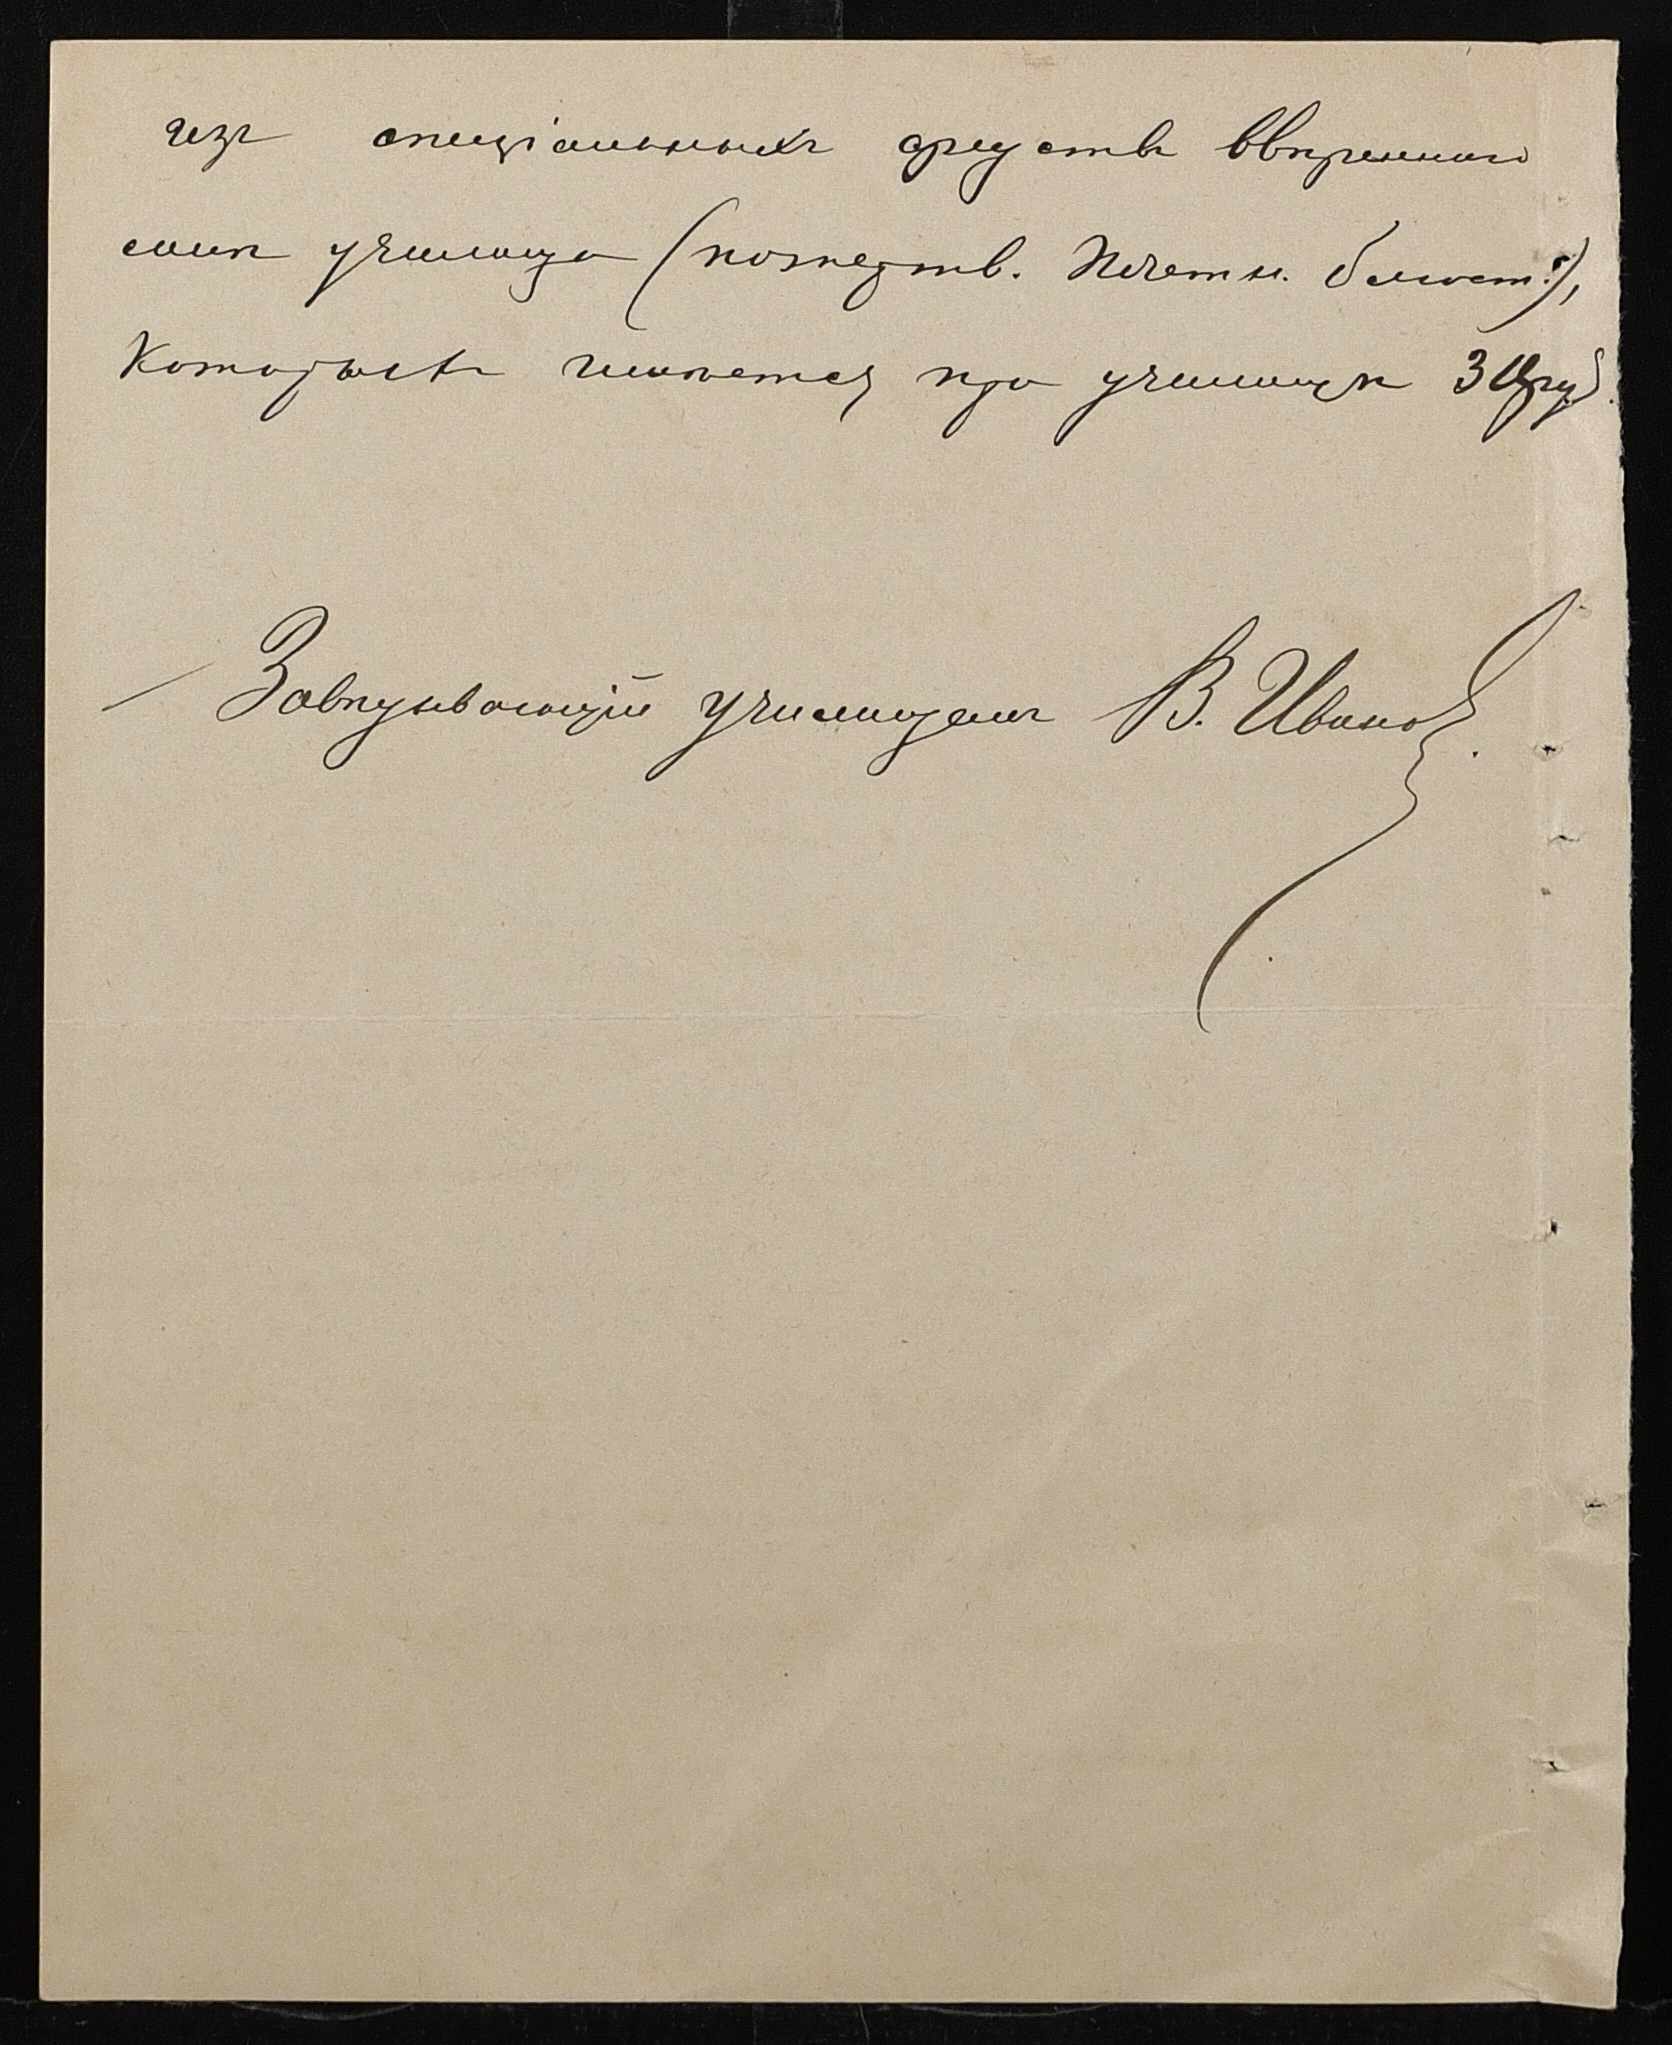 изъ спеціальныхъ средствъ ввѣреннаго
мнѣ училища (пожертв. Почетн. блюст.),
которыхъ имѣется при училищѣ 30 руб.
Завѣдывающій училищемъ В. Ивановъ.